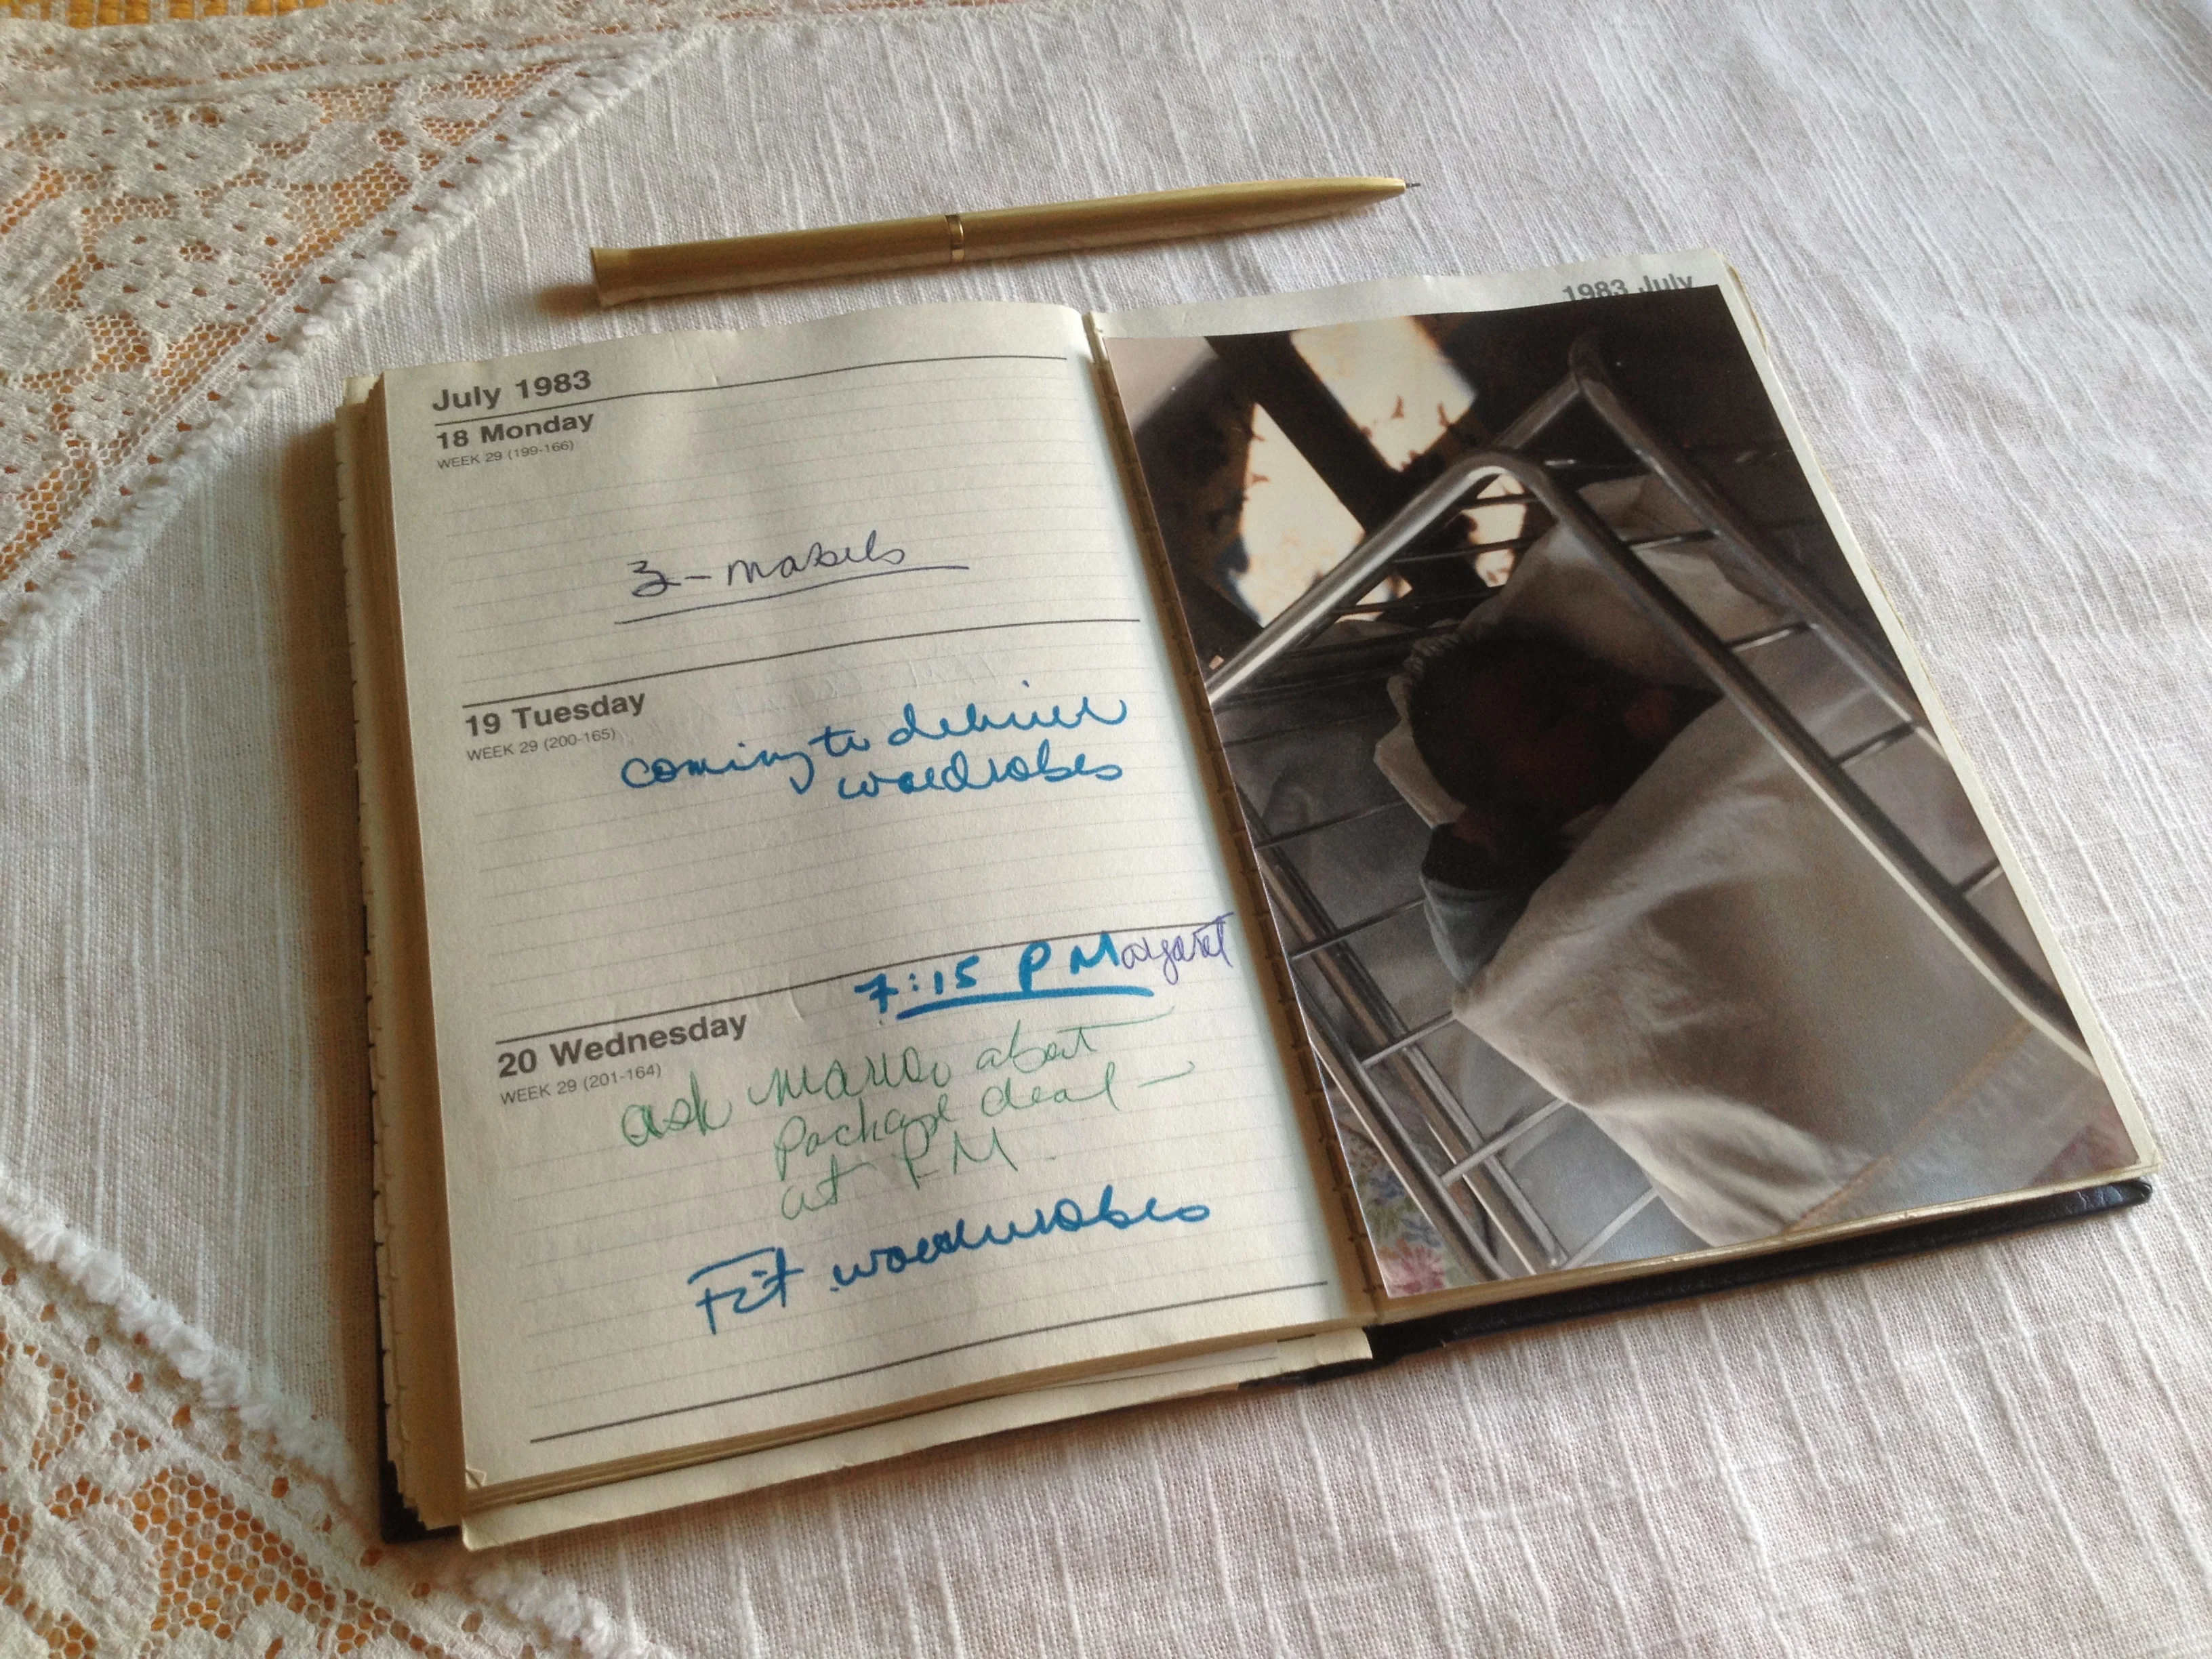 1983 July
July 1983
18 Monday
WEEK 29 (199-166)
3- Mabels
19 Tuesday
WEEK 29 (200-165)
coming to deliver
wardrobes
7:15 P Margaret
20 Wednesday
WEEK 29 (201-164)
ask about
package deal -
at P.M.
Fit wardrobes